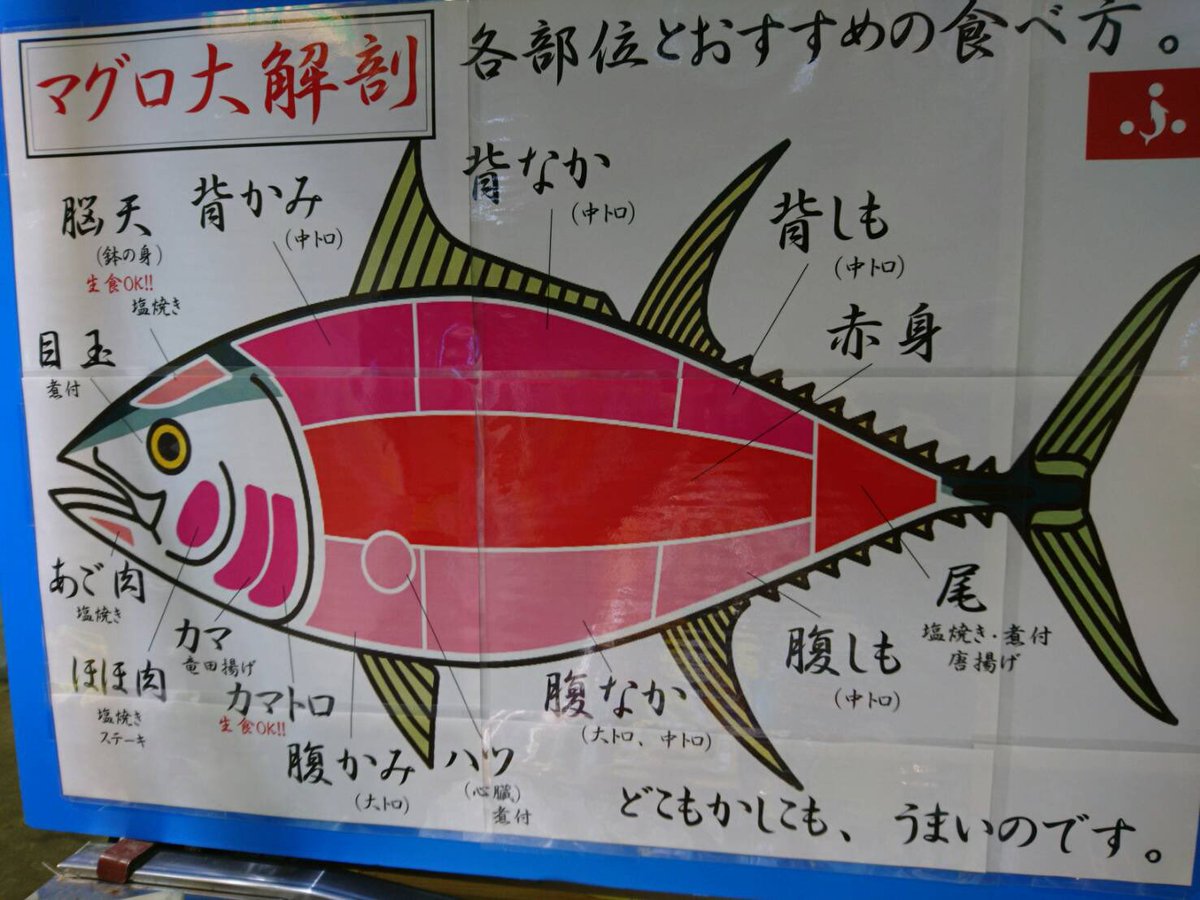 マグロ大解剖
各部位とおすすめの食べ方。
脳天
(鉢の身)
生食OK!!
塩焼き
背かみ
(中トロ)
背なか
(中トロ)
背しも
(中トロ)
赤身
目玉
煮付
あご肉
塩焼き
ほほ肉
塩焼き
ステーキ
カマ
竜田揚げ
カマトロ
生食OK!!
腹かみ
(大トロ)
ハツ
(心臓)
煮付
腹なか
(大トロ、中トロ)
腹しも
(中トロ)
尾
塩焼き・煮付
唐揚げ
どこもかしこも、うまいのです。